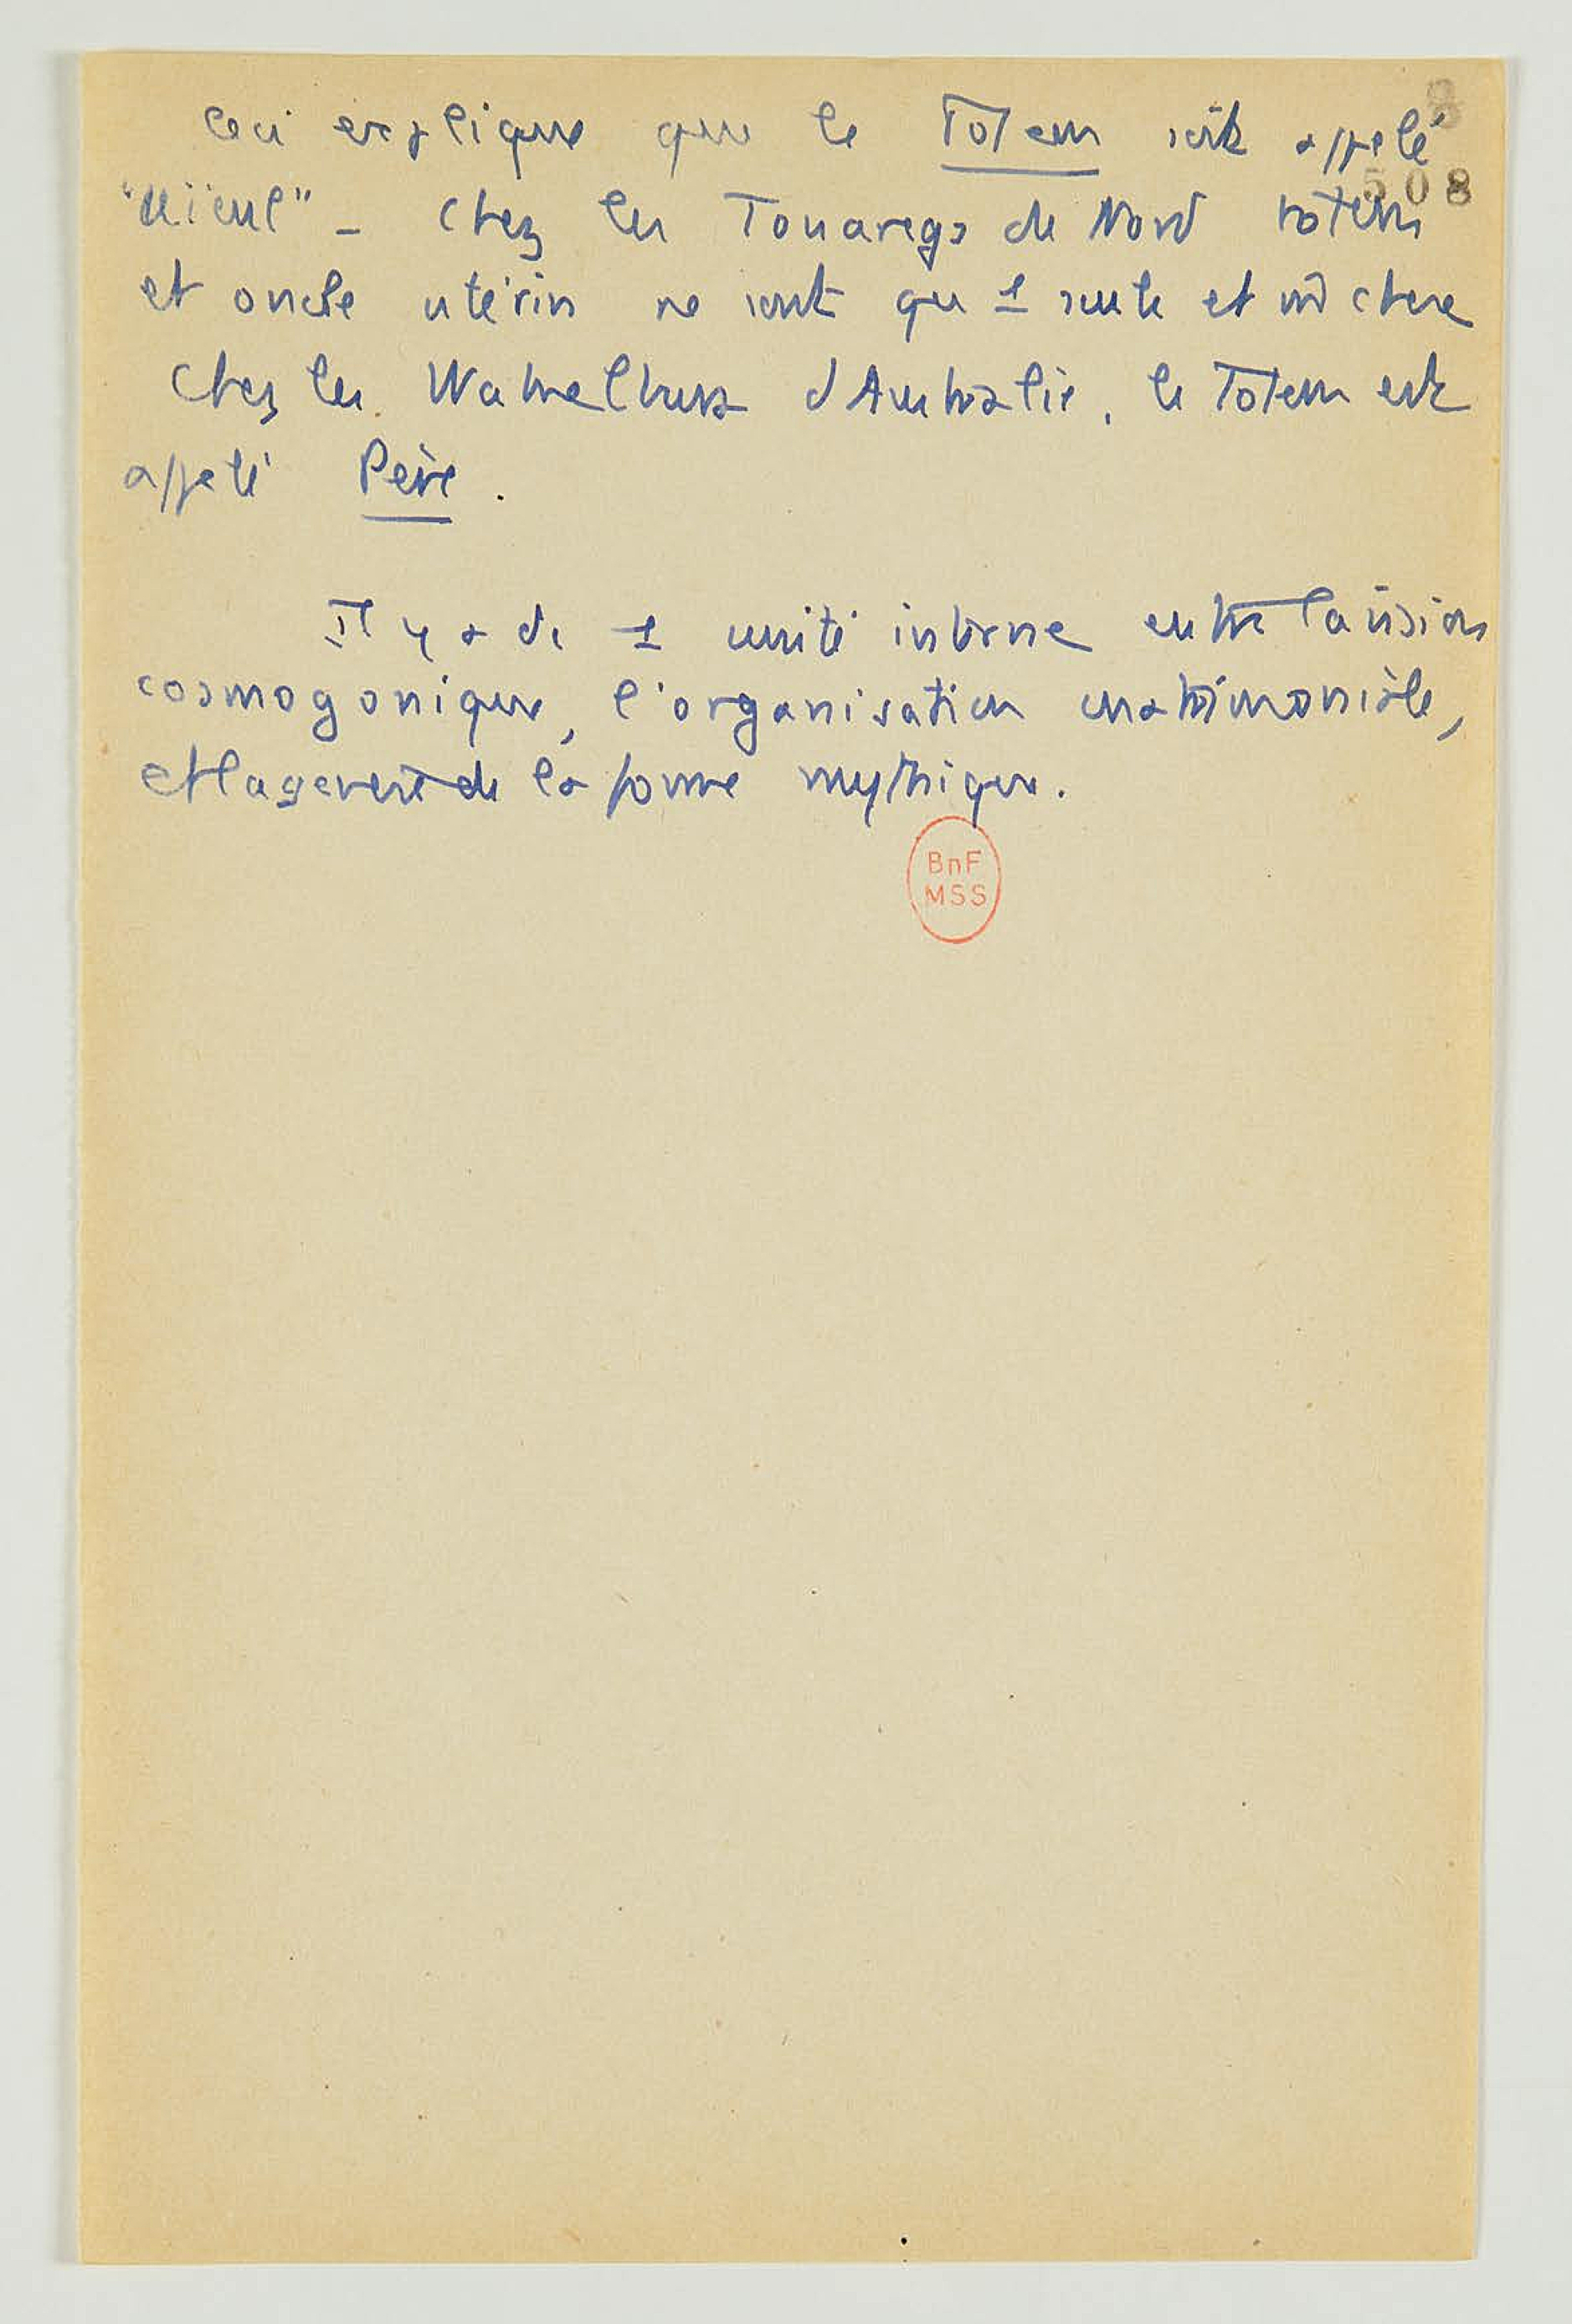 8
Ceci explique que le Totem soit appelé
508
"Aïeul" - Chez les Touaregs du Nord totem
et oncle utérin ne sont qu 1 seule et m̂ chose
Chez les d'Australie, le Totem est
appelé Père.
Il y a dc 1 unité interne entre la vision
cosmogonique, l'organisation matrimoniale,
et la de la forme mythique.
BnF
MSS